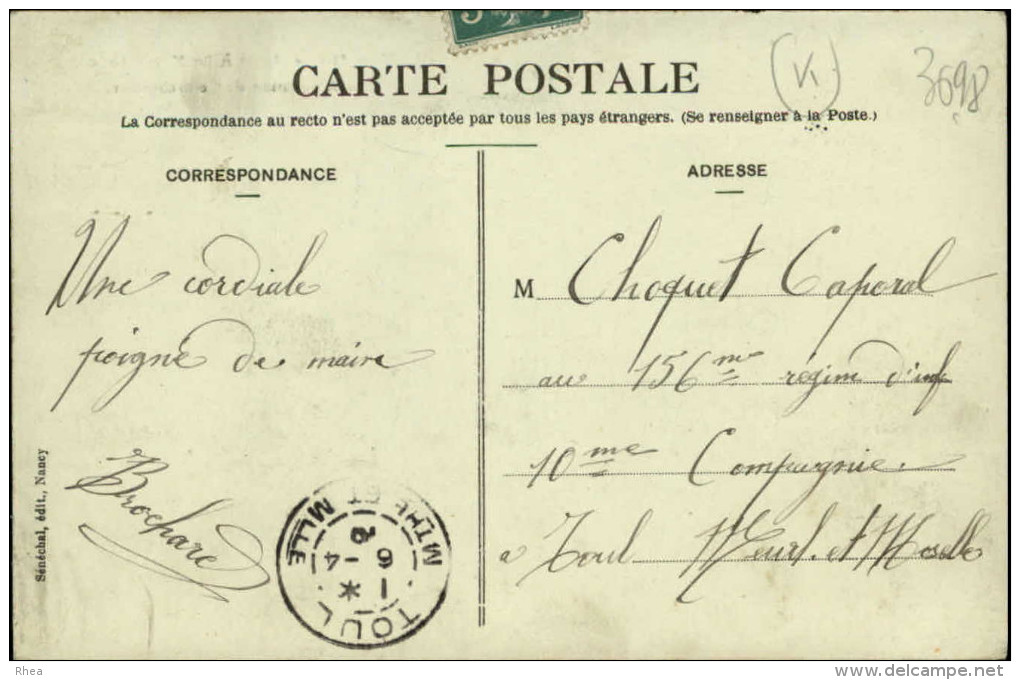 5
K
3698
CARTE POSTALE
La Correspondance au recto n'est pas acceptée par tous les pays étrangers. (Se renseigner à la Poste.)
CORRESPONDANCE
Une cordiale
poigné de maine
Brochard
Sénéchal, édit., Nancy
TOUL
MTHE ET MLLE
ADRESSE
M Choquet Caporal
au 156me régim d'inf
10me Compagnie.
a Toul Meurt. et Moselle
Rhea
www.delcampe.net